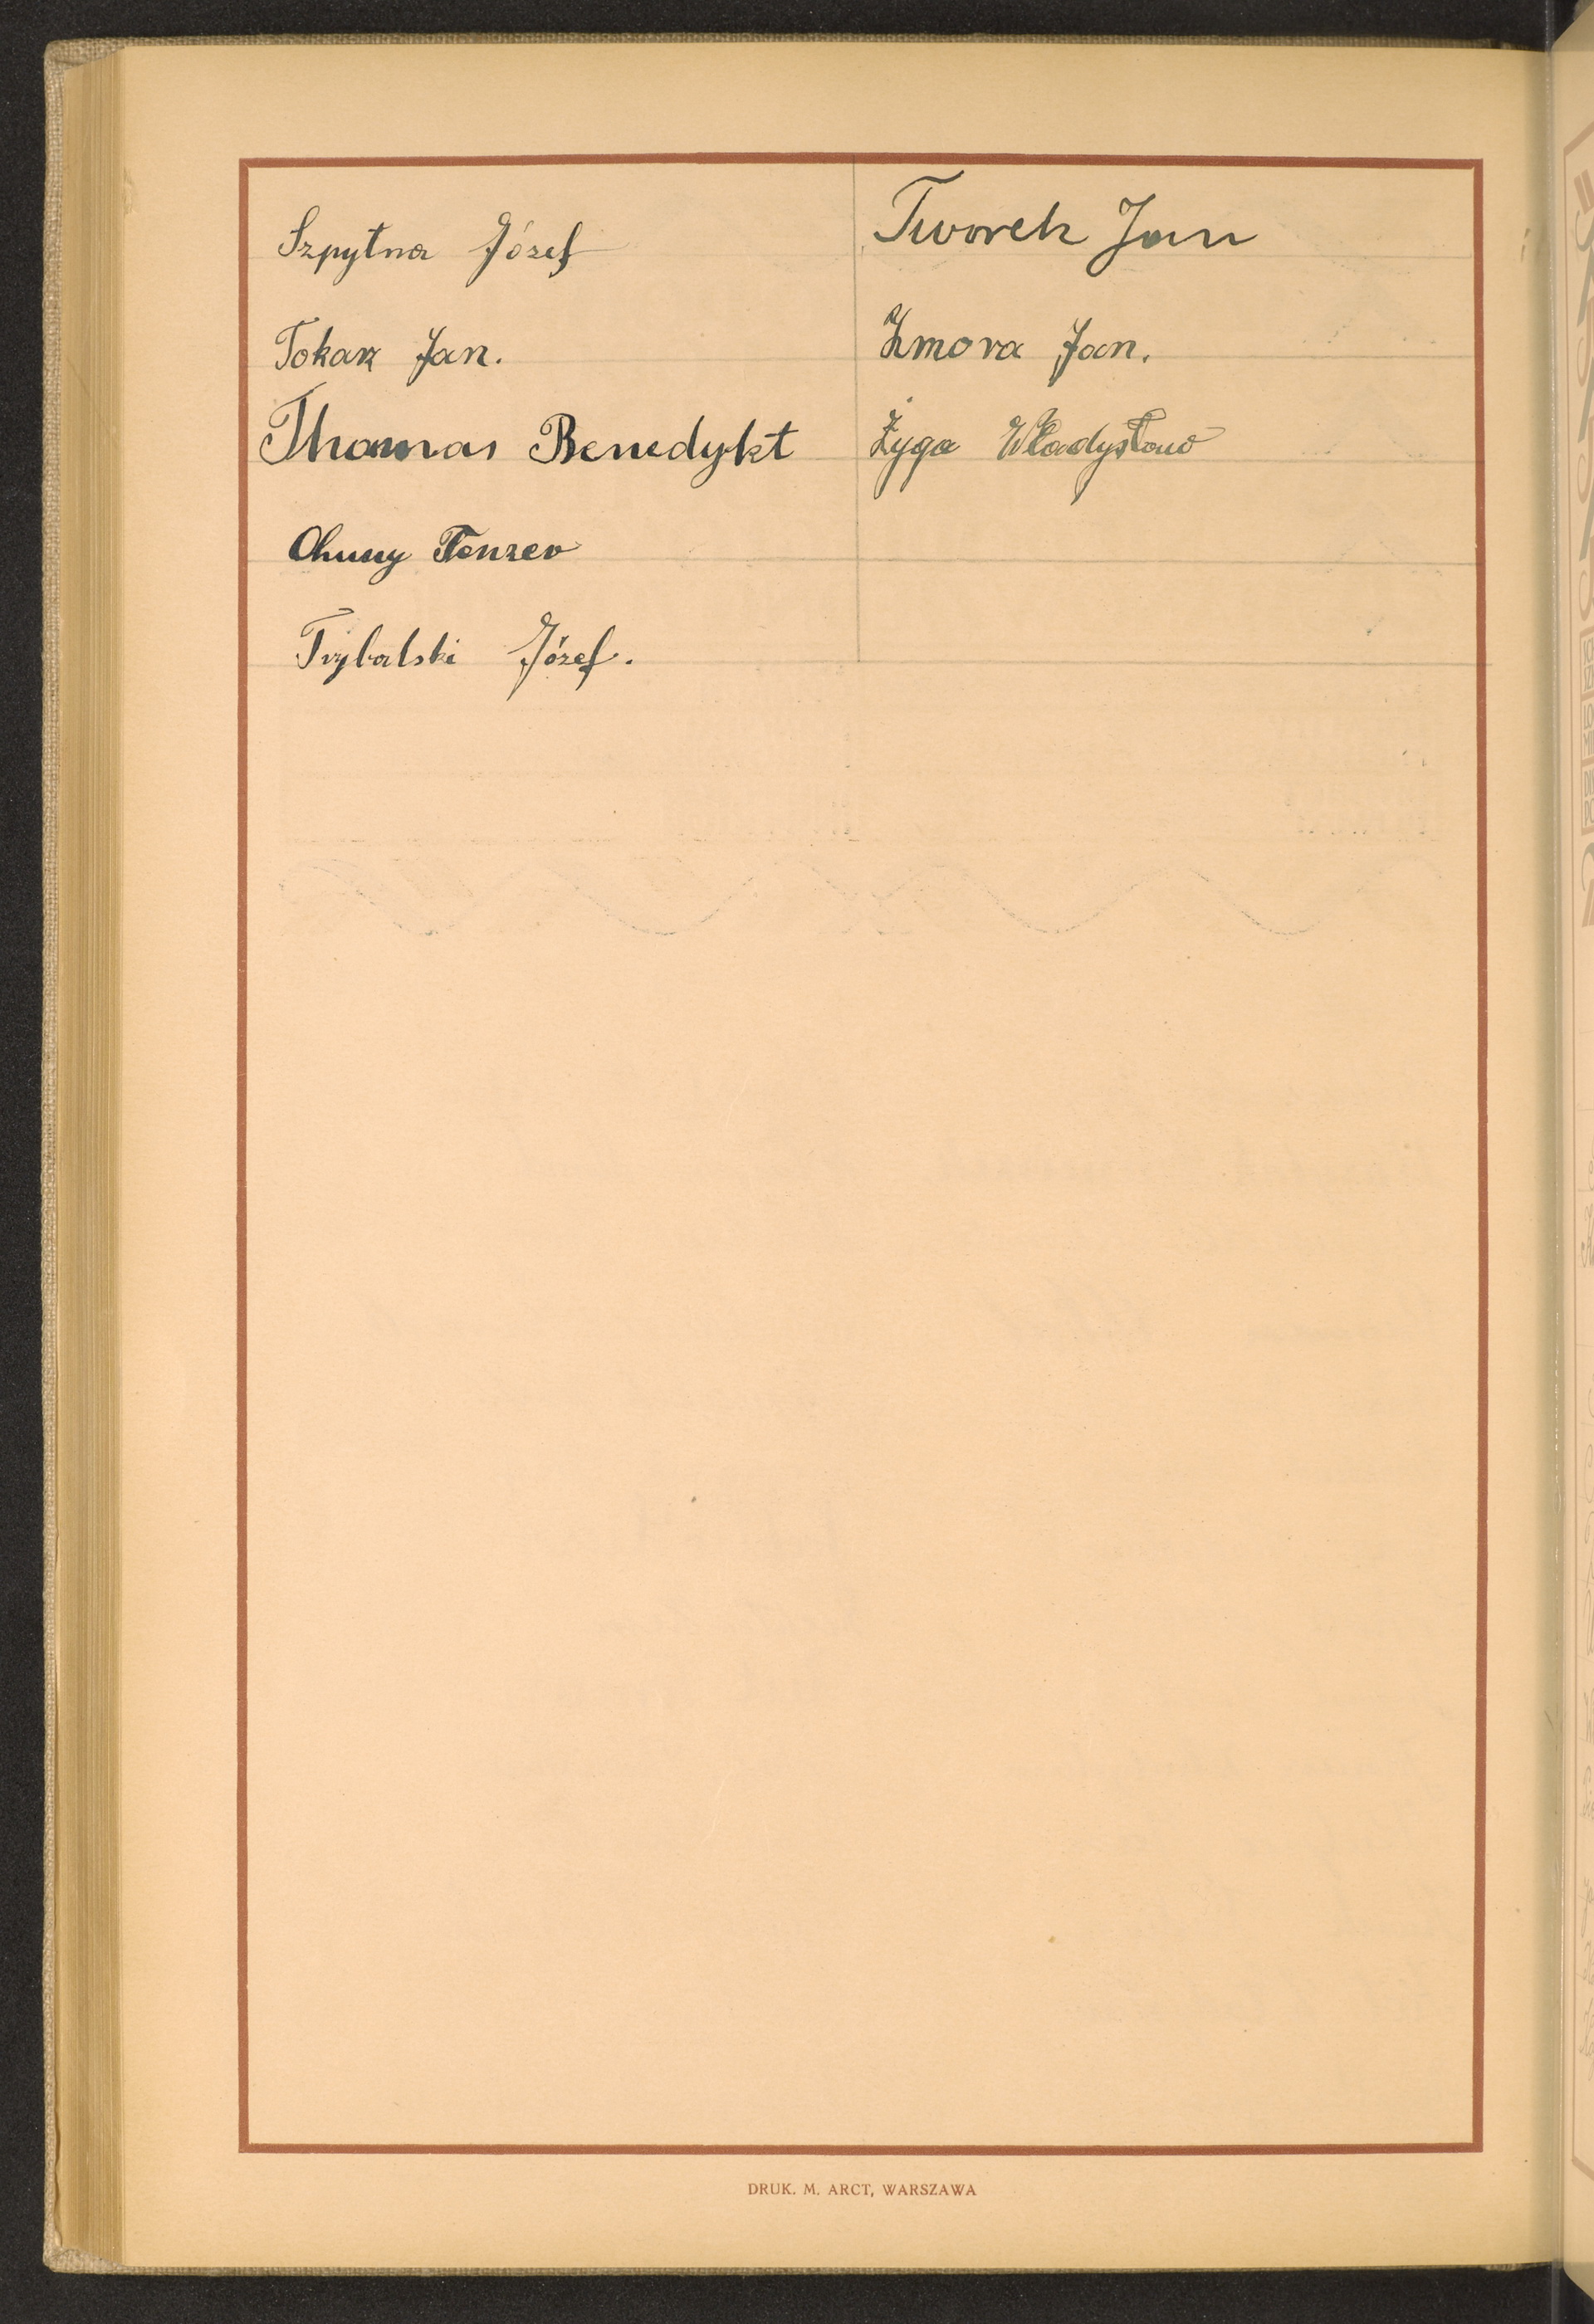 Szpytna Józef
Tokarz Jan.
Thomas Benedykt
Chuny Tenzer
Trybalski Józef.
Tworek Jan
Zmora Jan.
Żyga Władysław
DRUK. M. ARCT, WARSZAWA